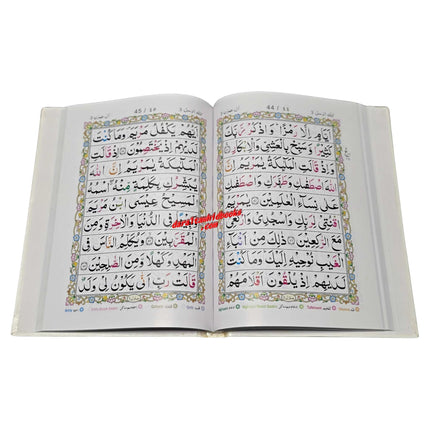 44 / ٤٤
يَّامٍ اِلَّا رَمْزًا وَاذْكُرْ رَّبَّكَ
كَثِيْرًا وَّسَبِّحْ بِالْعَشِيِّ وَالْاِبْكَارِ
وَاِذْ قَالَتِ الْمَلٰٓئِكَةُ يٰمَرْيَمُ اِنَّ
اللّٰهَ اصْطَفٰىكِ وَطَهَّرَكِ وَاصْطَفٰىكِ
عَلٰى نِسَآءِ الْعٰلَمِيْنَ يٰمَرْيَمُ
اقْنُتِيْ لِرَبِّكِ وَاسْجُدِيْ وَارْكَعِيْ
مَعَ الرّٰكِعِيْنَ ذٰلِكَ مِنْ اَنْۢبَآءِ
الْغَيْبِ نُوْحِيْهِ اِلَيْكَ وَمَا كُنْتَ
لَدَيْهِمْ اِذْ يُلْقُوْنَ اَقْلَامَهُمْ
45 / ٤٥
اَيُّهُمْ يَكْفُلُ مَرْيَمَ وَمَا كُنْتَ
لَدَيْهِمْ اِذْ يَخْتَصِمُوْنَ اِذْ قَالَتِ
الْمَلٰٓئِكَةُ يٰمَرْيَمُ اِنَّ اللّٰهَ
يُبَشِّرُكِ بِكَلِمَةٍ مِّنْهُ اسْمُهُ
الْمَسِيْحُ عِيْسَى ابْنُ مَرْيَمَ
وَجِيْهًا فِي الدُّنْيَا وَالْاٰخِرَةِ وَمِنَ
الْمُقَرَّبِيْنَ وَيُكَلِّمُ النَّاسَ فِي
الْمَهْدِ وَكَهْلًا وَّمِنَ الصّٰلِحِيْنَ
قَالَتْ رَبِّ اَنّٰى يَكُوْنُ لِيْ وَلَدٌ